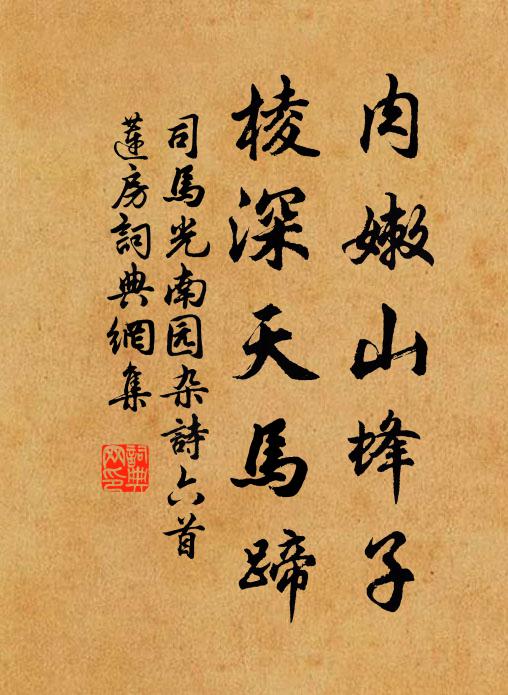 肉嫩山蜂子
棱深天馬蹄
司馬光南园杂詩六首
蓮房詞典網集
詞典
网印